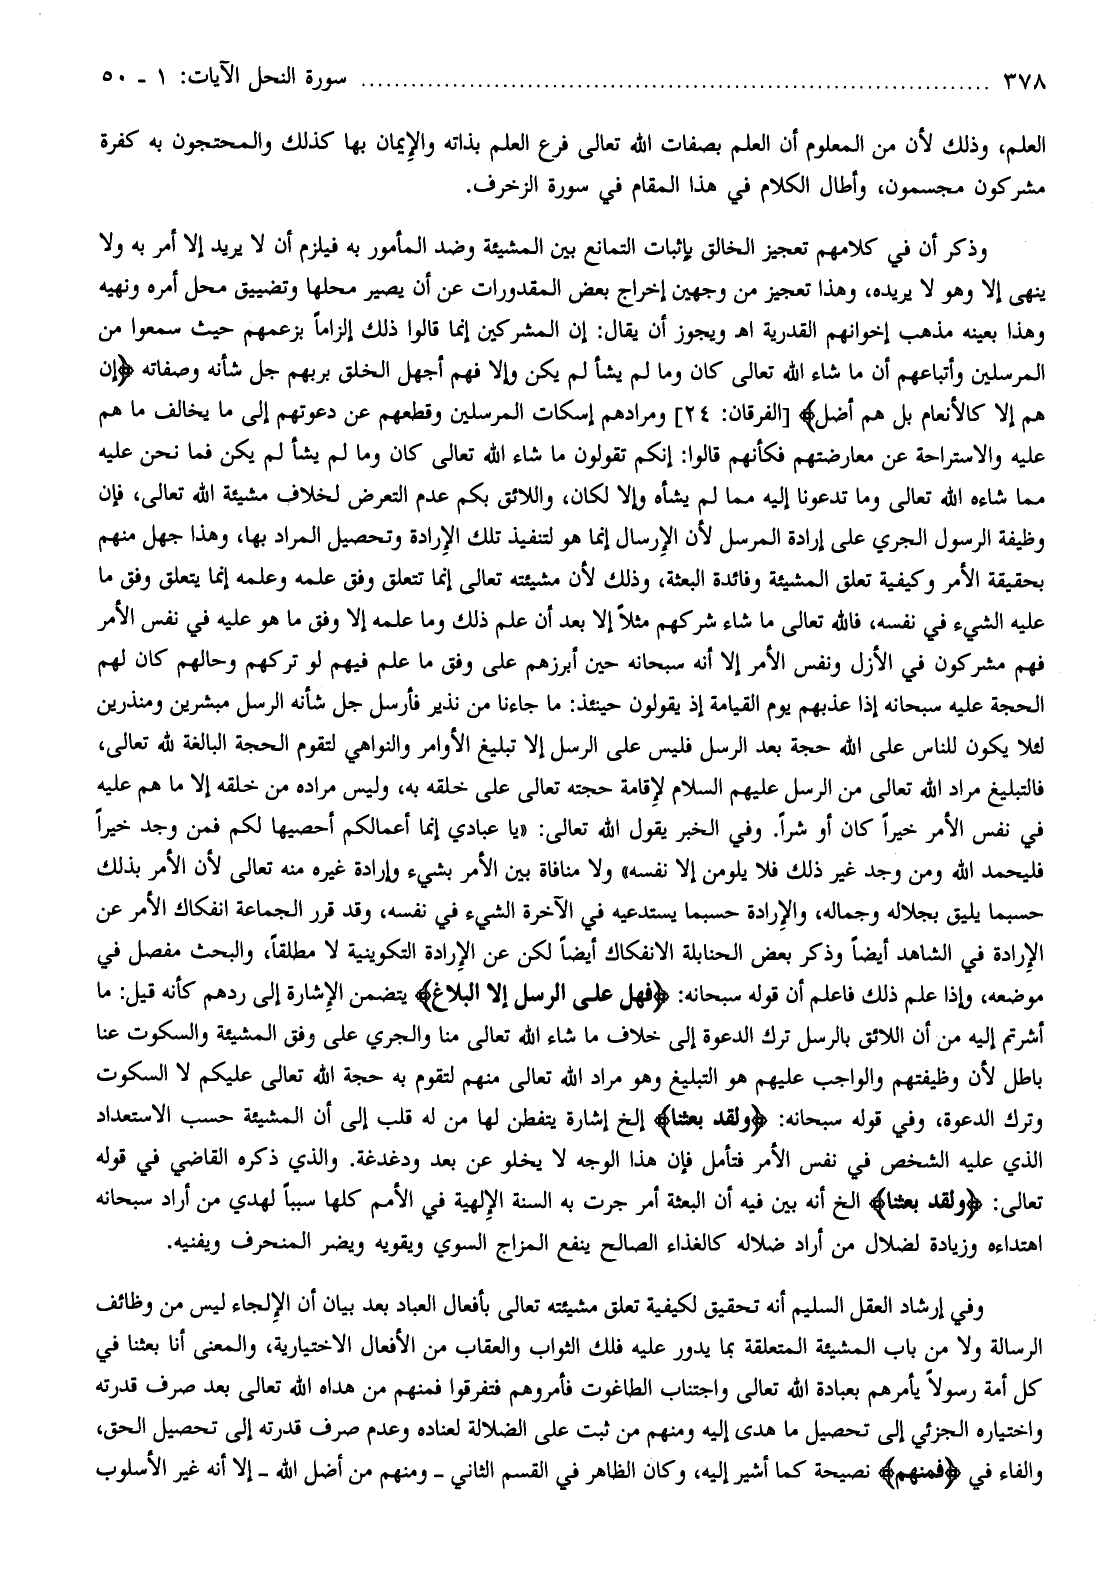 ٣٧٨ ........................................ سورة النحل الآيات: ١ ـ ٥٠
العلم، وذلك لأن من المعلوم أن العلم بصفات الله تعالى فرع العلم بذاته والإيمان بها كذلك والمحتجون به كفرة
مشركون مجسمون، وأطال الكلام في هذا المقام في سورة الزخرف.
وذكر أن في كلامهم تعجيز الخالق بإثبات التمانع بين المشيئة وضد المأمور به فيلزم أن لا يريد إلا أمر به ولا
ينهى إلا وهو لا يريده، وهذا تعجيز من وجهين إخراج بعض المقدورات عن أن يصير محلها وتضييق محل أمره ونهيه
وهذا بعينه مذهب إخوانهم القدرية اهـ ويجوز أن يقال: إن المشركين إنما قالوا ذلك إلزاماً بزعمهم حيث سمعوا من
المرسلين وأتباعهم أن ما شاء الله تعالى كان وما لم يشأ لم يكن وإلا فهم أجهل الخلق بربهم جل شأنه وصفاته ﴿إن
هم إلا كالأنعام بل هم أضل﴾ [الفرقان: ٢٤] ومرادهم إسكات المرسلين وقطعهم عن دعوتهم إلى ما يخالف ما هم
عليه والاستراحة عن معارضتهم فكأنهم قالوا: إنكم تقولون ما شاء الله تعالى كان وما لم يشأ لم يكن فما نحن عليه
مما شاءه الله تعالى وما تدعونا إليه مما لم يشأه وإلا لكان، واللائق بكم عدم التعرض لخلاف مشيئة الله تعالى، فإن
وظيفة الرسول الجري على إرادة المرسل لأن الإرسال إنما هو لتنفيذ تلك الإرادة وتحصيل المراد بها، وهذا جهل منهم
بحقيقة الأمر وكيفية تعلق المشيئة وفائدة البعثة، وذلك لأن مشيئته تعالى إنما تتعلق وفق علمه وعلمه إنما يتعلق وفق ما
عليه الشيء في نفسه، فالله تعالى ما شاء شركهم مثلاً إلا بعد أن علم ذلك وما علمه إلا وفق ما هو عليه في نفس الأمر
فهم مشركون في الأزل ونفس الأمر إلا أنه سبحانه حين أبرزهم على وفق ما علم فيهم لو تركهم وحالهم كان لهم
الحجة عليه سبحانه إذا عذبهم يوم القيامة إذ يقولون حينئذ: ما جاءنا من نذير فأرسل جل شأنه الرسل مبشرين ومنذرين
لئلا يكون للناس على الله حجة بعد الرسل فليس على الرسل إلا تبليغ الأوامر والنواهي لتقوم الحجة البالغة لله تعالى،
فالتبليغ مراد الله تعالى من الرسل عليهم السلام لإقامة حجته تعالى على خلقه به، وليس مراده من خلقه إلا ما هم عليه
في نفس الأمر خيراً كان أو شراً. وفي الخبر يقول الله تعالى: «يا عبادي إنما أعمالكم أحصيها لكم فمن وجد خيراً
فليحمد الله ومن وجد غير ذلك فلا يلومن إلا نفسه» ولا منافاة بين الأمر بشيء وإرادة غيره منه تعالى لأن الأمر بذلك
حسبما يليق بجلاله وجماله، والإرادة حسبما يستدعيه في الآخرة الشيء في نفسه، وقد قرر الجماعة انفكاك الأمر عن
الإرادة في الشاهد أيضاً وذكر بعض الحنابلة الانفكاك أيضاً لكن عن الإرادة التكوينية لا مطلقاً، والبحث مفصل في
موضعه، وإذا علم ذلك فاعلم أن قوله سبحانه: ﴿فهل على الرسل إلا البلاغ﴾ يتضمن الإشارة إلى ردهم كأنه قيل: ما
أشرتم إليه من أن اللائق بالرسل ترك الدعوة إلى خلاف ما شاء الله تعالى منا والجري على وفق المشيئة والسكوت عنا
باطل لأن وظيفتهم والواجب عليهم هو التبليغ وهو مراد الله تعالى منهم لتقوم به حجة الله تعالى عليكم لا السكوت
وترك الدعوة، وفي قوله سبحانه: ﴿ولقد بعثنا﴾ إلخ إشارة يتفطن لها من له قلب إلى أن المشيئة حسب الاستعداد
الذي عليه الشخص في نفس الأمر فتأمل فإن هذا الوجه لا يخلو عن بعد ودغدغة. والذي ذكره القاضي في قوله
تعالى: ﴿ولقد بعثنا﴾ الخ أنه بين فيه أن البعثة أمر جرت به السنة الإلهية في الأمم كلها سبباً لهدي من أراد سبحانه
اهتداءه وزيادة لضلال من أراد ضلاله كالغذاء الصالح ينفع المزاج السوي ويقويه ويضر المنحرف ويفنيه.
وفي إرشاد العقل السليم أنه تحقيق لكيفية تعلق مشيئته تعالى بأفعال العباد بعد بيان أن الإلجاء ليس من وظائف
الرسالة ولا من باب المشيئة المتعلقة بما يدور عليه فلك الثواب والعقاب من الأفعال الاختيارية، والمعنى أنا بعثنا في
كل أمة رسولاً يأمرهم بعبادة الله تعالى واجتناب الطاغوت فأمروهم فتفرقوا فمنهم من هداه الله تعالى بعد صرف قدرته
واختياره الجزئي إلى تحصيل ما هدى إليه ومنهم من ثبت على الضلالة لعناده وعدم صرف قدرته إلى تحصيل الحق،
والفاء في ﴿فمنهم﴾ نصيحة كما أشير إليه، وكان الظاهر في القسم الثاني ـ ومنهم من أضل الله ـ إلا أنه غير الأسلوب